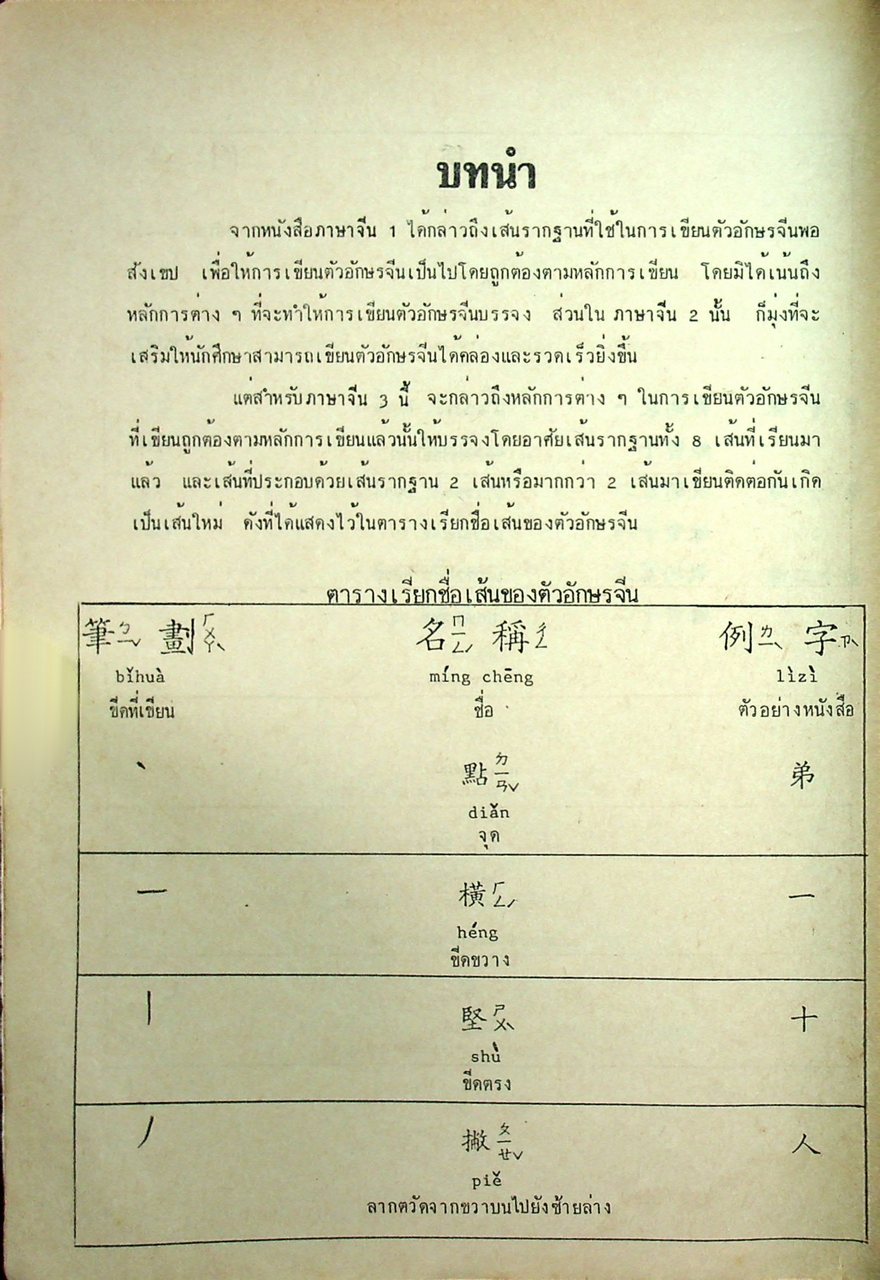 บทนำ
จากหนังสือภาษาจีน 1 ได้กล่าวถึงเส้นรากฐานที่ใช้ในการเขียนตัวอักษรจีนพอ
สังเขป เพื่อให้การเขียนตัวอักษรจีนเป็นไปโดยถูกต้องตามหลักการเขียน โดยมิได้เน้นถึง
หลักการต่าง ๆ ที่จะทำให้การเขียนตัวอักษรจีนบรรจง ส่วนใน ภาษาจีน 2 นั้น ก็มุ่งที่จะ
เสริมให้นักศึกษาสามารถเขียนตัวอักษรจีนได้คล่องและรวดเร็วยิ่งขึ้น
แต่สำหรับภาษาจีน 3 นี้ จะกล่าวถึงหลักการต่าง ๆ ในการเขียนตัวอักษรจีน
ที่เขียนถูกต้องตามหลักการเขียนแล้วนั้นให้บรรจงโดยอาศัยเส้นรากฐานทั้ง 8 เส้นที่เรียนมา
แล้ว และเส้นที่ประกอบด้วยเส้นรากฐาน 2 เส้นหรือมากกว่า 2 เส้นมาเขียนติดต่อกันเกิด
เป็นเส้นใหม่ ดังที่ได้แสดงไว้ในตารางเรียกชื่อเส้นของตัวอักษรจีน
ตารางเรียกชื่อเส้นของตัวอักษรจีน
筆ㄅㄧˇ 劃ㄏㄨㄚˋ 名ㄇㄧㄥˊ 稱ㄔㄥ 例ㄌㄧˋ 字ㄗˋ
bǐhuà míng chēng lìzì
ขีดที่เขียน ชื่อ ตัวอย่างหนังสือ
丶 點ㄉㄧㄢˇ 弟
diǎn
จุด
一 橫ㄏㄥˊ 一
héng
ขีดขวาง
丨 堅ㄕㄨˋ 十
shù
ขีดตรง
丿 撇ㄆㄧㄝˇ 人
piě
ลากตวัดจากขวาบนไปยังซ้ายล่าง